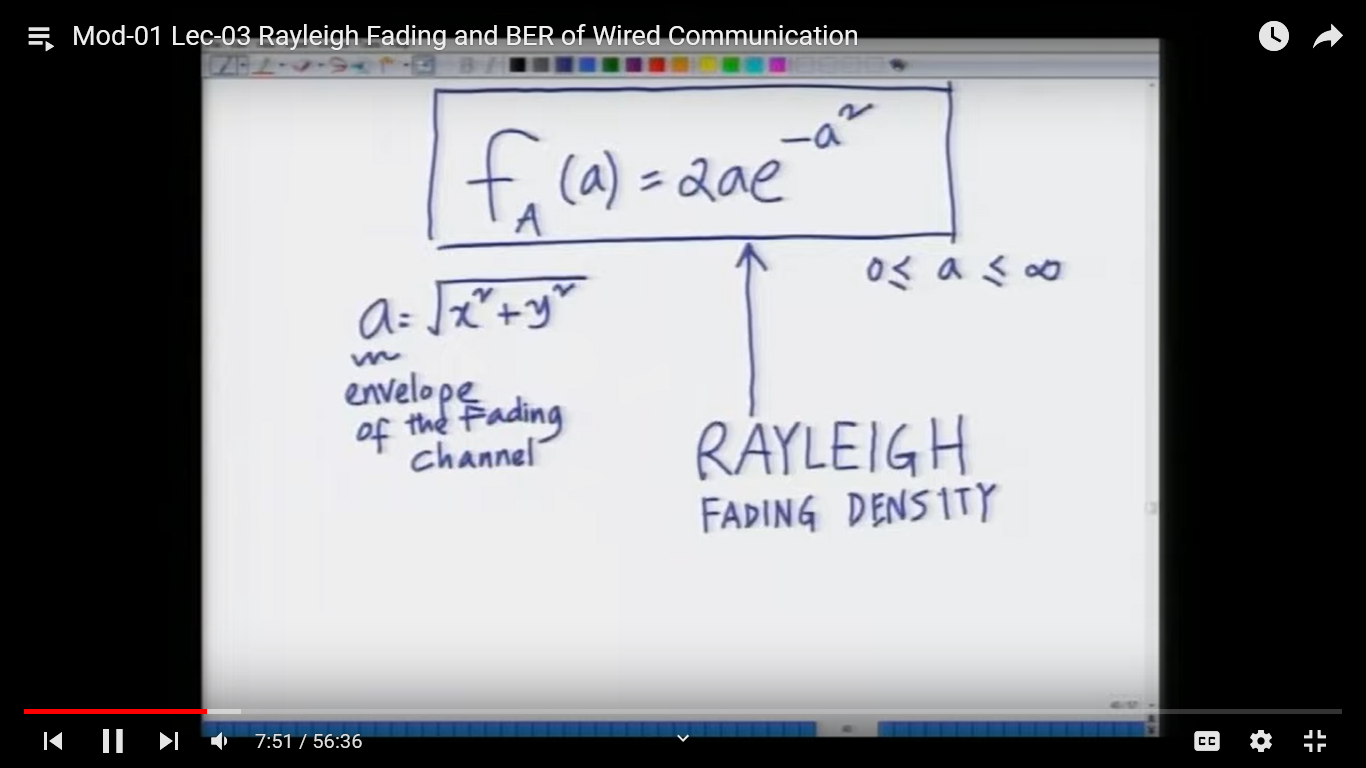 Mod-01 Lec-03 Rayleigh Fading and BER of Wired Communication
f_A (a) = 2ae^{-a^2}
0 ≤ a ≤ ∞
a = √(x² + y²)
envelope
of the Fading
channel
RAYLEIGH
FADING DENSITY
7:51 / 56:36
CC